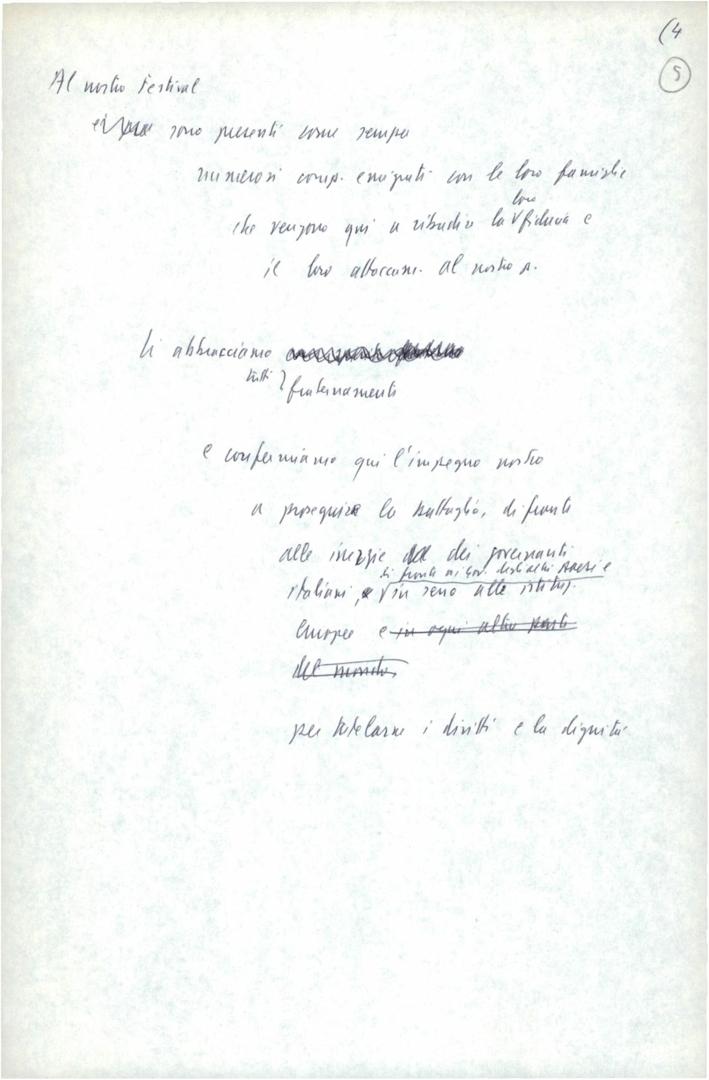 (4
5
Al nostro Festival
sono presenti come sempre
numerosi comp. emigrati con le loro famiglie
loro
che vengono qui a ribadire la fiducia e
il loro attaccam. al nostro p.
Li abbracciamo
tutti fraternamente
e confermiamo qui l'impegno nostro
a proseguire la battaglia, di fronte
alle inerzie dei governanti
di fronte ai gov. degli altri Paesi e
italiani, in seno alle istituz.
Europee e in ogni altra parte
del mondo,
per tutelarne i diritti e la dignità